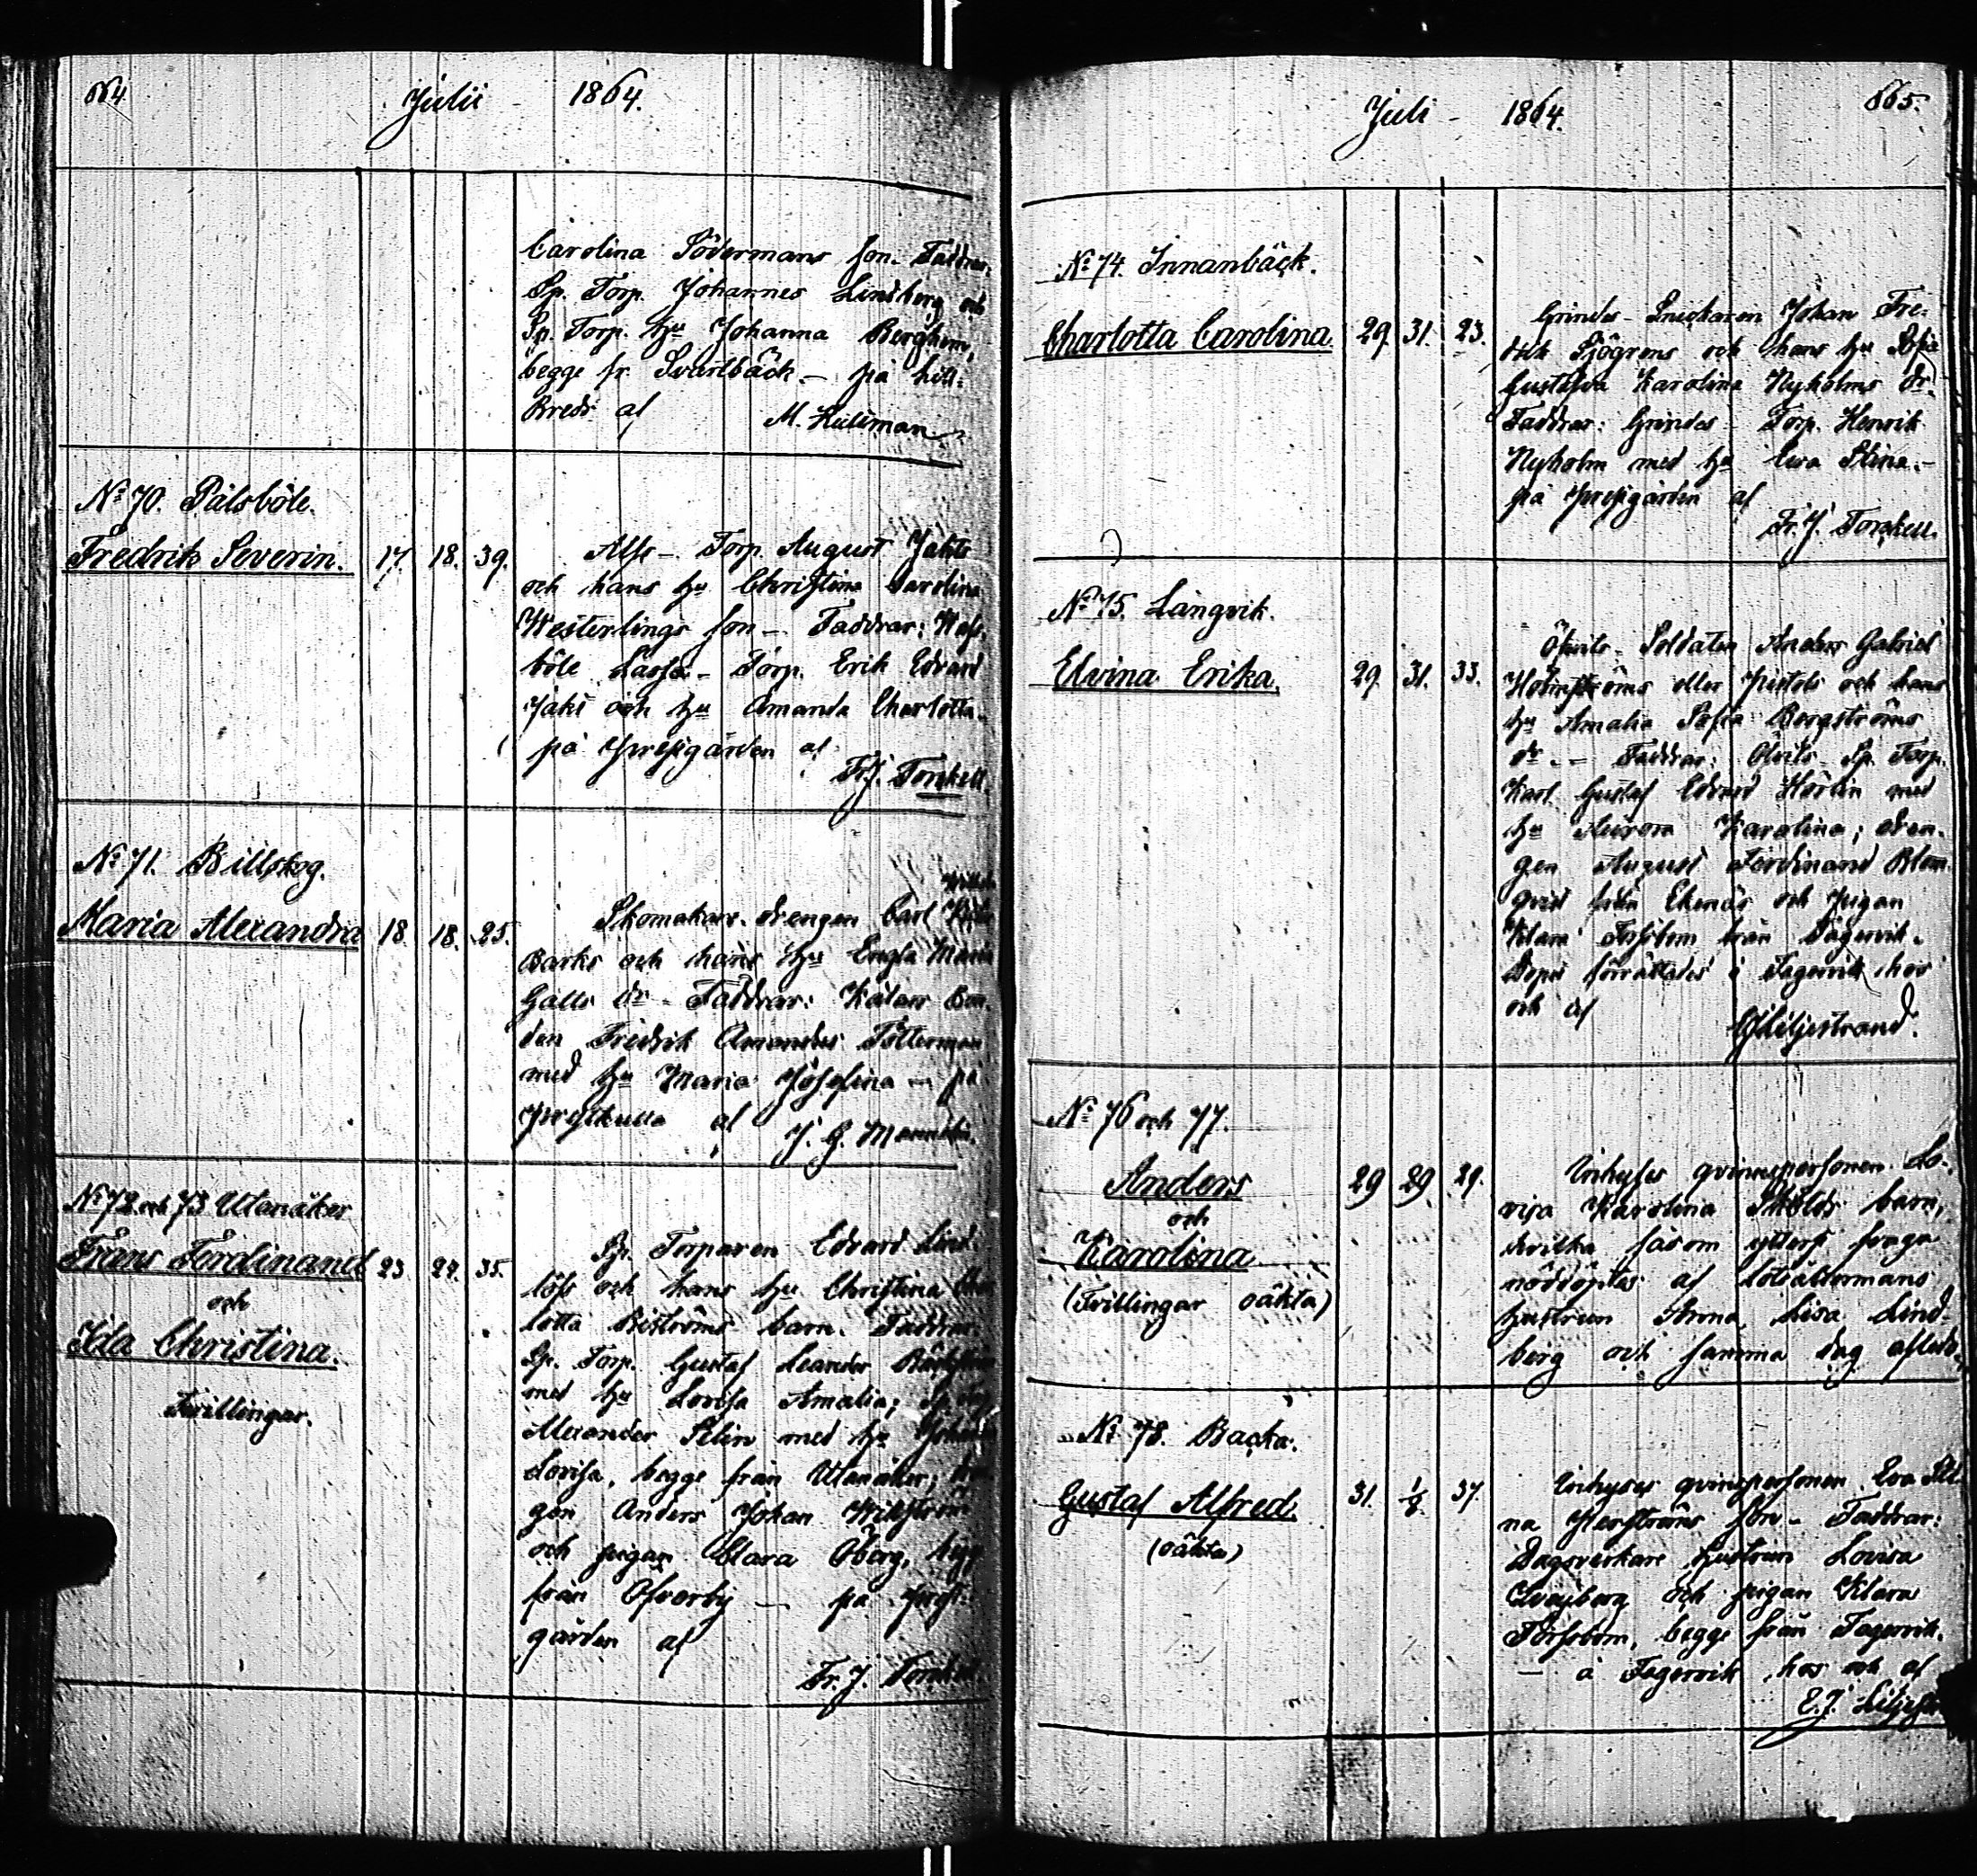 664 Julii - 1864.
Carolina Södermans son - Faddrar:
Sp. Torp. Johannes Lindberg och
Sp. Torp. hu Johanna Berghem,
begge fr. Svartbäck. - på
Breds af M. Hultman
No 70. Pålsböle.
Fredrik Severin. 17. 18. 39. Alfs - Torp. August Jakts
och hans hu Christina Carolina
Westerlings son - Faddrar:
böle Lasses - Torp. Erik Edvard
Jakt och hu Amanda Charlotta -
på Prestgården af
Fr. J. Torckell.
No 71. Billskog.
Maria Alexandra 18. 18. 25. Skomakare-drengen Carl
Barks och hans hu Engla Maria
Galls dr - Faddrar: Bon-
den Fredrik Amandus Tötterman
med hu Maria Josefina - på
Prestkulla af J. G.
No 72 och 73 Utanåker
Frans Ferdinand 23. 24. 35. Sp. Torparen Edvard Lind-
löfs och hans hu Christina Char-
och
lotta Riströms barn. Faddrar:
Ida Christina.
Sp. Torp. Gustaf Leander
med hu Lovisa Amalia;
Tvillingar.
Alexander Selin med hu
Lovisa, begge från Utanåker;
gen Anders Johan Wikström
och pigan Clara Öberg,
från Öfverby - på Prest-
gården af
Fr. J. Torckell
Juli - 1864. 665.
No 74. Innanbäck.
Charlotta Carolina. 29. 31. 23. Grindes - Snickaren Johan Fre-
drik Sjögrens och hans hu Sofia
Gustafva Karolina Nyholms dr.
Faddrar: Grindes - Torp. Henrik
Nyholm med hu Eva Stina. -
på Prestgården af
Fr. J. Torckell.
No 75. Långvik.
Elvina Erika. 29. 31. 33. Soldaten Anders Gabriel
Holmströms eller Pistols och hans
hu Amalia Sofia Bergströms
dr. - Faddrar: Sp. Torp.
Karl Gustaf Edvard med
hu Aurora Karolina; dren-
gen August Ferdinand Blom-
qvist från Ekenäs och Pigan
Klara Forsbom från Fagervik.
Dopet förrättades å Fagervik hos
och af
Liljestrand.
No 76 och 77.
Anders 29 29 29. Inhyses qvinnspersonen Lo-
och
visa Karolina Skölds barn,
Karolina
hvilka såsom ytterst svaga
nöddöptes af
(Tvillingar oäkta)
hustrun Anna Lisa Lind-
berg och samma dag afledo.
No 78. Backa.
Gustaf Alfred. 31. 1/8 37. Inhyses qvinspersonen Eva Sti-
na son - Faddrar:
(oäkta)
Dagsverkare hustrun Lovisa
och pigan Klara
Forsbom, begge från Fagervik.
- å Fagervik hos och af
E. J.